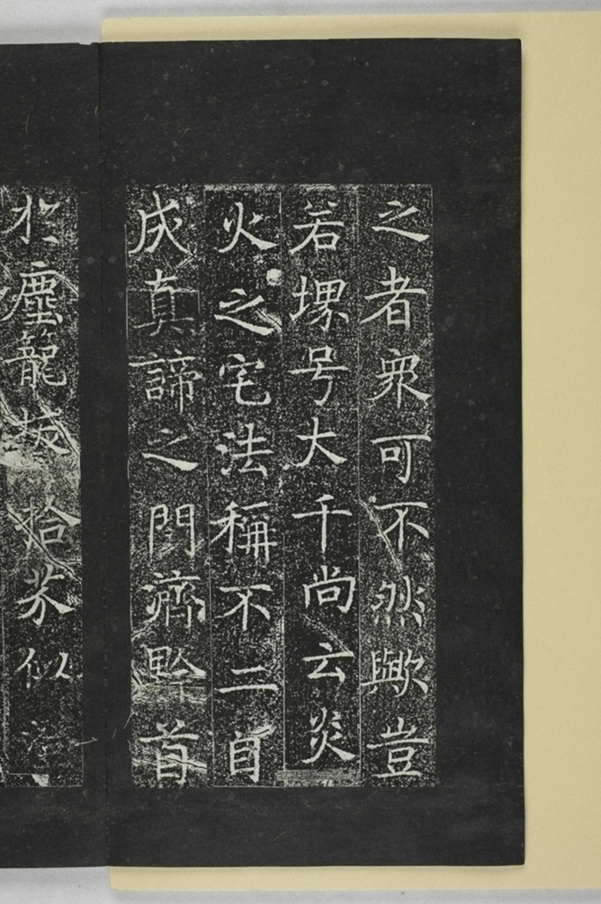 之者眾可不然歟豈
若堺号大千尚云炎
火之宅法稱不二自
成真諦之門濟黔首
於塵籠拔拾芥似